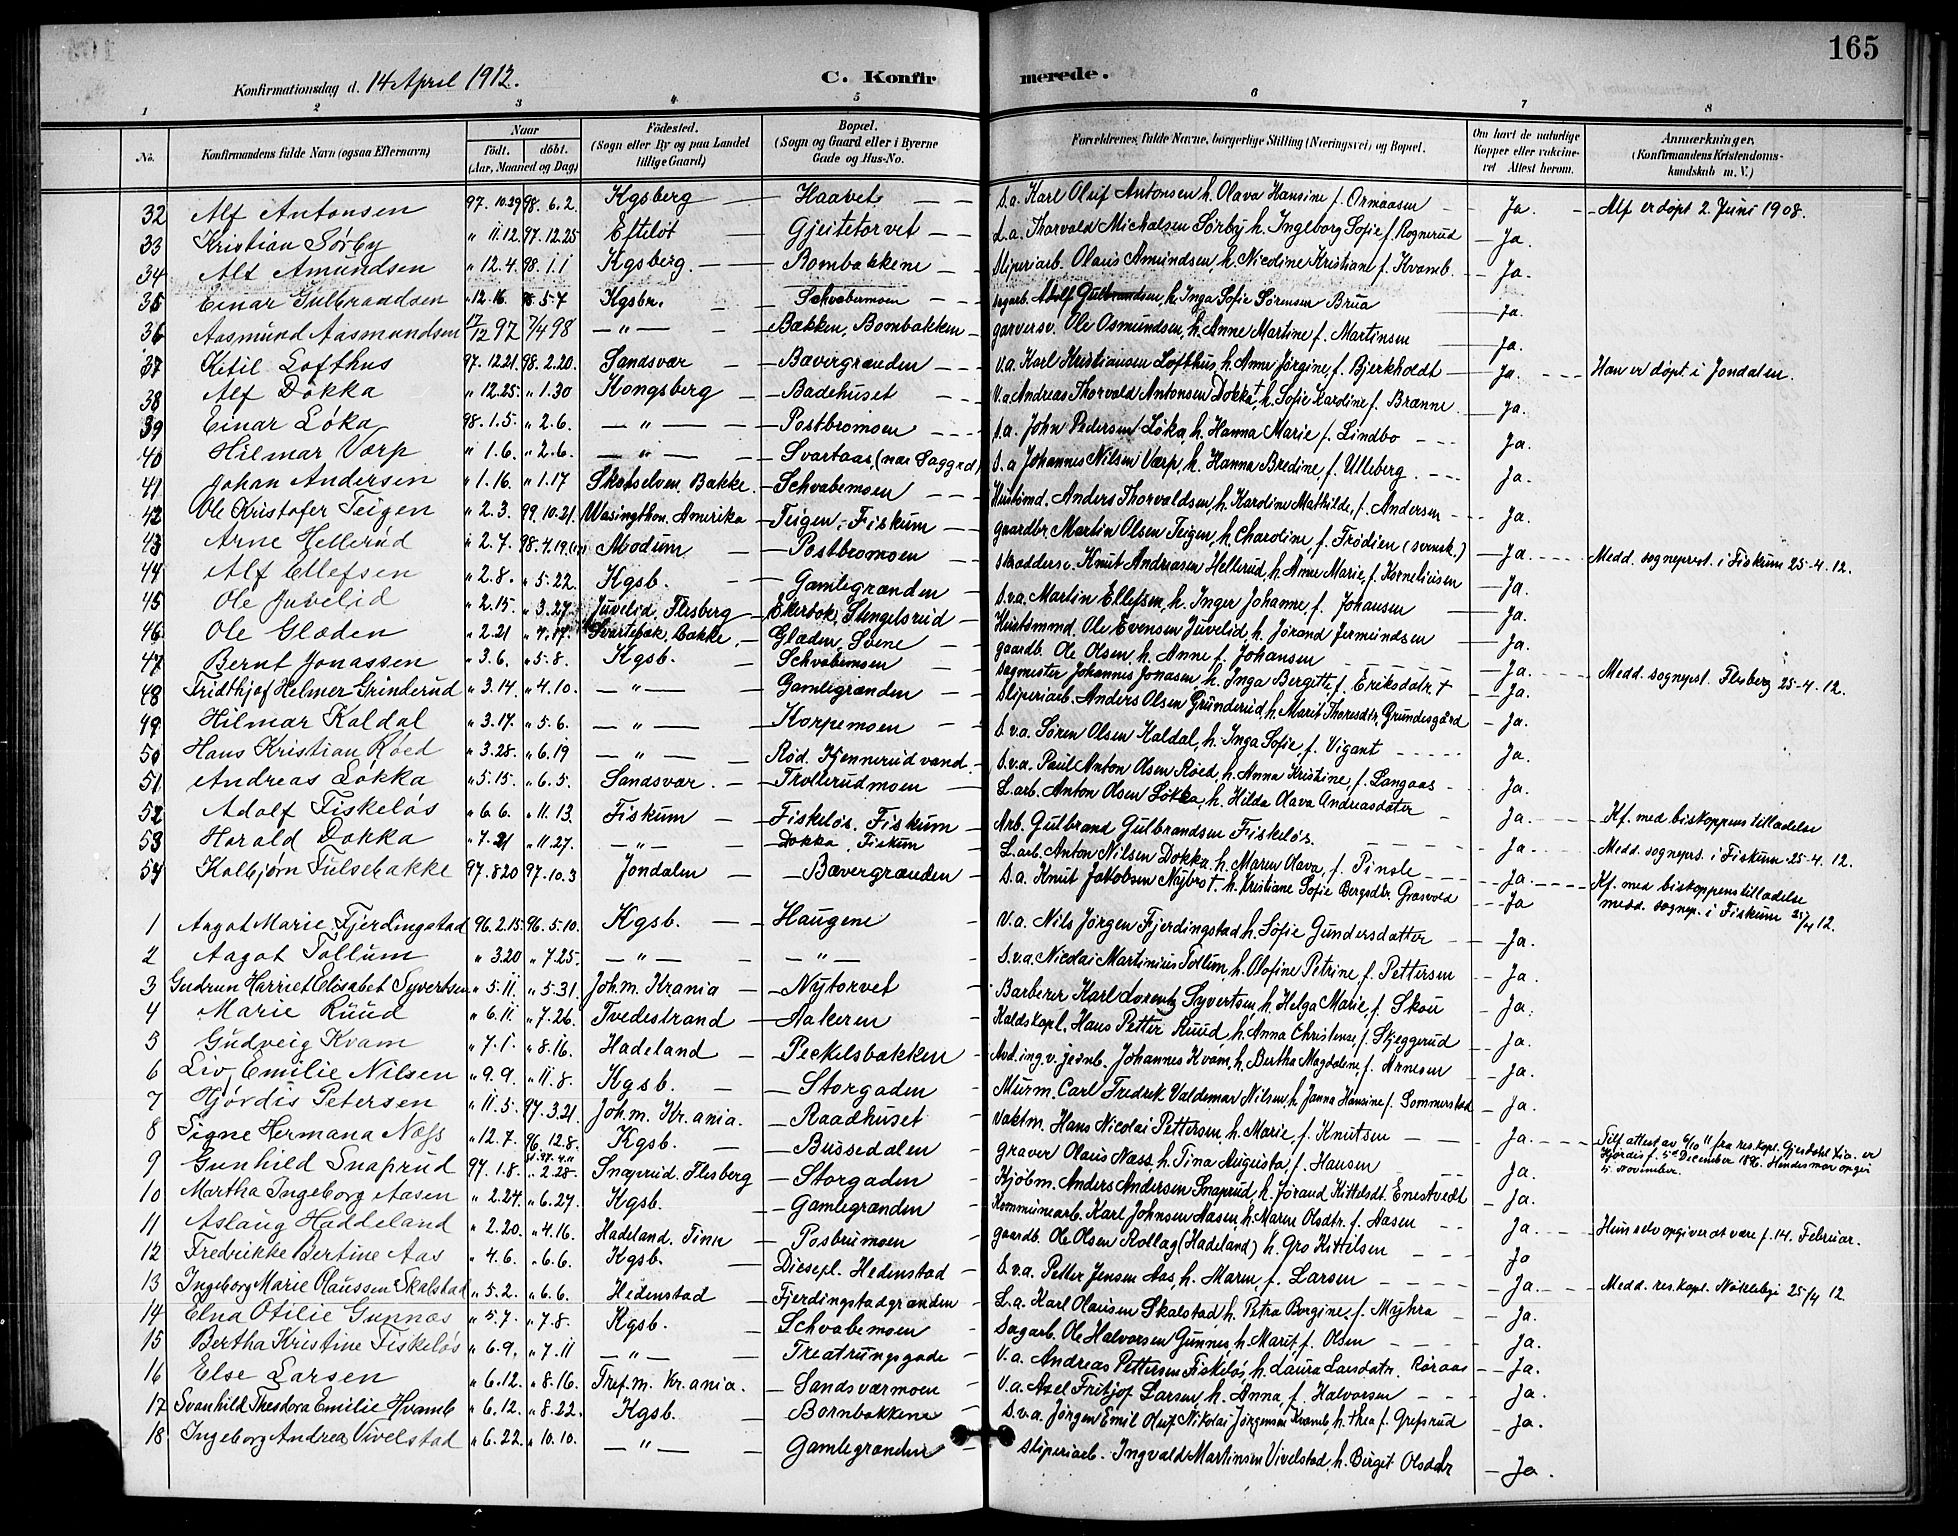 165
Konfirmationsdag d. 14 April 1912. C. Konfirmerede.
1 2 3 4 5 6 7 8
No. Konfirmandens fulde Navn (ogsaa Efternavn) Naar født. døbt. (Aar, Maaned og Dag) Fødested. (Sogn eller By og paa Landet tillige Gaard) Bopæl. (Sogn og Gaard eller i Byerne Gade og Hus-No. Forældrenes fulde Navne, borgerlige Stilling (Næringsvei) og Bopæl. Om havt de naturlige Kopper eller vaccineret Attest herom. Anmerkninger. (Konfirmandens Kristendomskundskab m. V.)
32 Alf Antonsen 97. 10.29 98. 6.2. Kgsberg Haavet S.a. Karl Oluf Antonsen h. Olava Hansine f. Ormaasen Ja. Alf er døpt 2. Juni 1908.
33 Kristian Sørby " 11.12. 97.12.25 Efteløt Gjeitetorvet d.a. Thorvald Michalsen Sørby h. Ingeborg Sofie f. Rognerud Ja.
34 Alf Amundsen " 12.4. 98.1.1 Kgsberg. Bombakkene Sliperiarb. Olaus Amundsen, h. Nicoline Kristiane f. Kvamb. Ja.
35 Einar Gulbrandsen " 12.16. 98 5.7 Kgsbr. Schvabemoen Sagarb. Adolf Gulbrandsen, h. Inga Sofie Sørensen Brua Ja.
36 Aasmund Aasmundsen 17/12 97 7/4 98 — " — Bakken, Bombakken garversv. Ole Osmundsen, h. Anne Martine f. Martinsen Ja.
37 Ketil Lofthus 97. 12.21 98. 2.20. Sandsvær Bævergrænden V.a. Karl Kristiansen Lofthus, h. Anne Jørgine, f. Bjerkholdt Ja. Han er døpt i Jondalen.
38 Alf Dokka " 12.25. " 1.30 Kongsberg Badehuset V.a. Andreas Thorvald Antonsen Dokka†, h. Sofie Karoline f. Brænne. Ja.
39 Einar Løka 98. 1.5. " 2.6. — " — Postbromoen S.a. John Pedersen Løka, h. Hanna Marie f. Lindbo Ja.
40 Hilmar Varp " 1.6. " 2.6. — " — Svartaas, S.a Johannes Nilsen Varp, h. Hanna Bredine f. Ulleberg. Ja.
41 Johan Andersen " 1.16. " 1.17 Skotselven, Bakke. Schvabemoen Husmd. Anders Thorvaldsen, h. Karoline Mathilde, f. Andersen Ja.
42 Ole Kristofer Teigen " 2.3. 99.10.21. Wasingthon. Amerika Teigen, Fiskum gaardbr. Martin Olsen Teigen, h. Charoline, f. Frødien (svensk.) Ja. Medd. sogneprest. i Fiskum 25-4.12.
43 Arne Hellerud " 2.7. 98.4.19. Modum Postbromoen skrædders. Knut Andreasen Hellerud, h. Anne Marie, f. Korneliusen Ja.
44 Alf Ellefsen " 2.8. " 5.22. Kgsb. Gamlegrænden S.v.a. Martin Ellefsen, h. Inger Johanne, f. Johansen Ja.
45 Ole Juvelid " 2.15. " 3.27. Juvelid Flesberg Ekerbok, Stengelsrud Husmmd. Ole Evensen Juvelid, h. Jørand Jermundsen Ja.
46 Ole Glæden " 2.21 " 4.17. Svartebæk, Bakke, Glæden, Svene gaardb. Ole Olsen, h. Anne f. Johansen Ja. Medd. sogneprst. Flesberg 25-4.12.
47 Bernt Jonassen " 3.6. " 5.8. Kgsb. Schvabemoen sagmester Johannes Jonasen, h. Inga Bergitte, f. Eriksdatr † Ja.
48 Fridthjof Helmer Grinderud " 3.14. " 4.10. — " — Gamlegrænden Sliperiarb. Anders Olsen Grunderud, h. Marit Thoresdtr Grundesgård Ja.
49 Hilmar Kaldal " 3.17. " 5.6. — " — Korpemoen S.v.a. Søren Olsen Kaldal, h. Inga Sofie, f. Vigant Ja.
50 Hans Kristian Røed " 3.28. " 6.19 — " — Rød, Kjennerud vand. S.v.a. Paul Anton Olsen Røed, h. Anna Kristine, f. Langaas Ja.
51 Andreas Løkka " 5.15. " 6.5. Sandsvær. Trollerudmoen L.arb. Anton Olsen Løkka, h. Hilda Olava Andreasdater Ja.
52 Adolf Fiskeløs " 6.6. " 11.13. Fiskum Fiskeløs, Fiskum Arb. Gulbrand Gulbrandsen Fiskeløs. Ja. Kf. med biskoppens tilladelse
53 Harald Dokka " 7.21 " 11.27. — " — Dokka, Fiskum L.arb. Anton Nilsen Dokka, h. Maren Olava, f. Pinsle Ja. Medd. sogneprs. i Fiskum 25-4.12.
54 Kolbjørn Tulsebakke 97. 8.20 97.10.3 Jondalen Bævergrænden S.a. Knut Jakobsen Nybro †, h. Kristiane Sofie Bergsdtr. Græsvold Ja Kf. med biskoppens tilladelse medd. sognep. i Fiskum 25/4 12.
1 Aagot Marie Fjerdingstad 96. 2.15. 96. 5.10. Kgsb. Haugene V.a. Nils Jørgen Fjerdingstad h. Sofie Gundersdatter Ja.
2 Aagot Tollum " 3.20 " 7.25. — " — — " — S.v.a. Nicolai Martinius Tollum, h. Olofine Petrine, f. Pettersen Ja.
3 Gudrun Harriet Elisabet Syvertsen " 5.11. " 5.31. Joh.m. Kr.ania Nytorvet Barberer Karl Lorentz Syvertsen, h. Helga Marie, f. Skou Ja.
4 Marie Ruud " 6.11 " 7.26. Tvedestrand Aakeren Kaldskapl. Hans Petter Ruud, h. Anna Christense, f. Skjeggerud Ja.
5 Gudveig Kvam " 7.1. " 8.16. Hadeland Peckelsbakken Avd.ing.v. jernb. Johannes Kvam, h. Bertha Magdalene, f. Arnesen Ja.
6 Liv Emilie Nilsen " 9.9. " 11.8. Kgsb. Storgaden Murm. Carl Fredrik Valdemar Nilsen, h. Janna Hansine f. Sommerstad Ja.
7 Hjørdis Petersen " 11.5. 97.3.21. Joh.m. Kr.ania. Raadhuset Vaktm. Hans Nicolai Pettersen, h. Marie, f. Knutsen Ja. Tilf. attest av 6/10 11 fra res.kapl. Gjesdahl Xia. er Hjørdis f. 5te December 1896. Hendes mor opgir 5. november.
8 Signe Hermana Næss " 12.7. 96.12.8. Kgsb. Bussedalen graver Olaus Næss, h. Tina Augusta, f. Hansen Ja.
9 Gunhild Snaprud 97. 1.8. " 2.28. Snaprud. Flesberg Storgaden Kjøbm. Anders Andersen Snaprud, h. Jørand Kittelsdt. Enestvedt Ja.
10 Martha Ingeborg Aasen " 2.24. " 6.27. Kgsb. Gamlegrænden Kommunearb. Karl Johnsen Aasen, h. Maren Olsdtr. f. Aasen Ja. Hun selv opgiver at være f. 14. Februar.
11 Aslaug Haddeland " 2.20. " 4.16. Hadeland. Tinn Posbrumoen gaardb. Ole Olsen Rollag (Hadeland) h. Gro Kittilsen Ja
12 Fredrikke Bertine Aas " 4.6. " 6.6. Kgsb. Diesepl. Hedenstad S.v.a. Petter Jensen Aas, h. Maren, f. Larsen Ja. Medd. res.kapl. Nøklebye 25/4 12.
13 Ingeborg Marie Olaussen Skalstad " 5.2. " 6.6. Hedenstad Fjerdingstadgrænden L.a. Karl Olausen Skalstad, h. Petra Borgine, f. Myhra Ja.
14 Elna Otilie Gunnæs " 5.7 " 7.8. Kgsb. Schvabemoen Sagarb. Ole Halvorsen Gunnes, h. Marit, f. Olsen Ja.
15 Bertha Kristine Fiskeløs " 6.9. " 7.11 — " — Treatrungsgade V.a. Andreas Pettersen Fiskeløs, h. Laura Larsdatr. Røraas Ja.
16 Else Larsen " 6.12. " 8.16. Tref.m. Kr.ania. Sandsværmoen V.a. Axel Fritjof Larsen, h. Anna, f. Halvorsen Ja.
17 Svanhild Theodora Emilie Hvamb " 6.12. " 8.22. Kgsb. Bornbakkene S.v.a. Jørgen Emil Oluf Nikolai Jørgensen Kvamb, h. Thea f. Grefsrud Ja.
18 Ingeborg Andrea Vivelstad " 6.22. " 10.10. — " — Gamlegrænden Sliperiarb. Ingvald Martinsen Vivelstad, h. Birgit Olsdatr Ja.